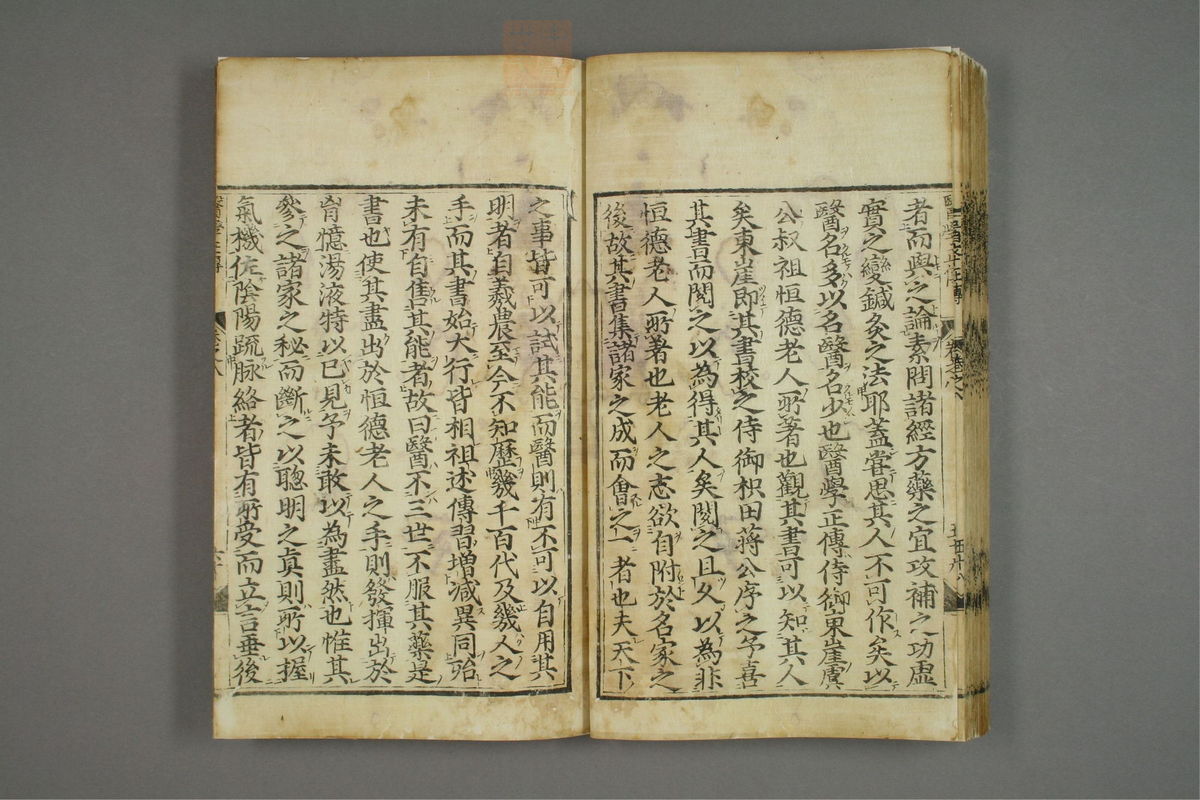 者而與之論素問諸經方藥之宜攻補之功虛
實之變鍼灸之法耶蓋嘗思其人不可作矣以
醫名多以名醫名少也醫學正傳侍御東崖虞
公叔祖恒德老人所著也觀其書可以知其人
矣東崖即其書校之侍御枳田蔣公序之予喜
其書而閱之以為得其人矣閱之且久以為非
恒德老人所著也老人之志欲自附於名家之
後故其書集諸家之成而會之一者也夫天下
之事皆可以試其能而醫則有不可以自用其
明者自羲農至今不知歷幾千百代及幾人之
手而其書始大行皆相祖述傳習增減異同殆
未有自售其能者故曰醫不三世不服其藥是
書也使其盡出於恒德老人之手則發揮出於
胷憶湯液特以已見予未敢以為盡然也惟其
參之諸家之秘而斷之以聰明之真則所以握
氣機佐陰陽疏脉絡者皆有所受而立言垂後